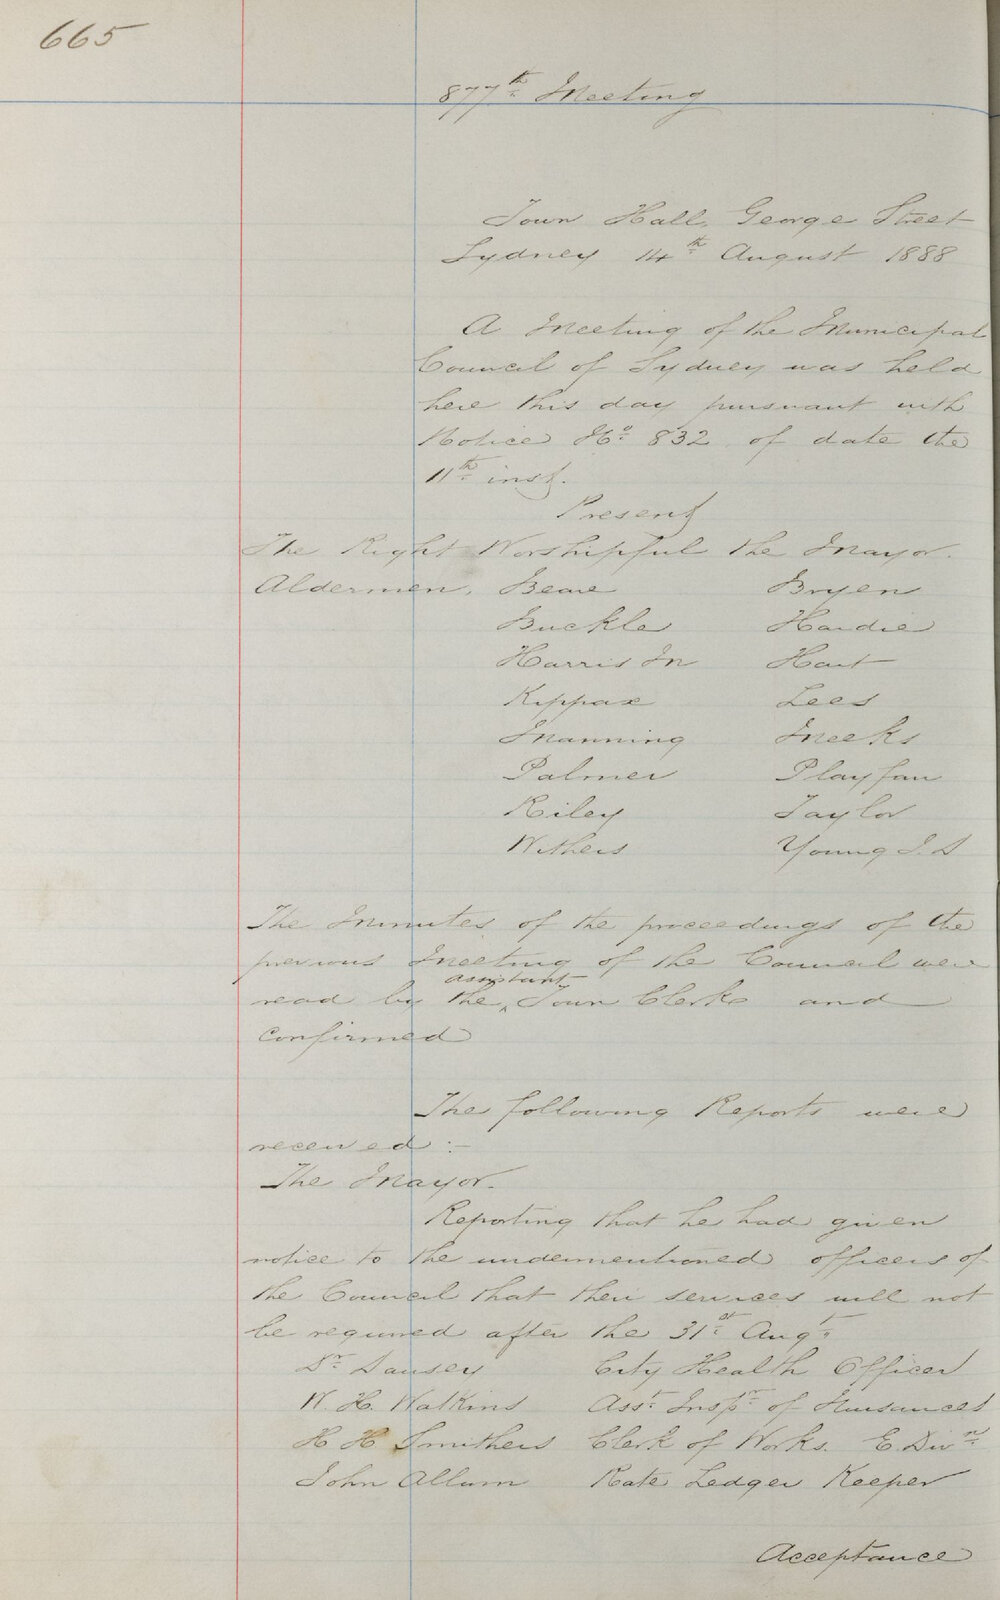 665
877th Meeting
Town Hall, George Street
Sydney 14th August 1888
A Meeting of the Municipal
Council of Sydney was held
here this day pursuant with
Notice No. 832 of date the
11th inst.
Present
The Right Worshipful the Mayor.
Aldermen, Beare Bryen
Buckle Hardie
Harris Jn Hart
Kippax Lees
Manning Meeks
Palmer Playfair
Riley Taylor
Withers Young J. S
The Minutes of the proceedings of the
previous Meeting of the Council were
assistant
read by the Town Clerk and
confirmed
The following Reports were
received :-
The Mayor.
Reporting that he had given
notice to the undermentioned officers of
the Council that their services will not
be required after the 31st Augt
Dr. Dansey City Health Officer
W. H. Watkins Asst. Inspr. of Nuisances
H H Smithers Clerk of Works. E. Divn.
John Allum Rate Ledger Keeper
Acceptance